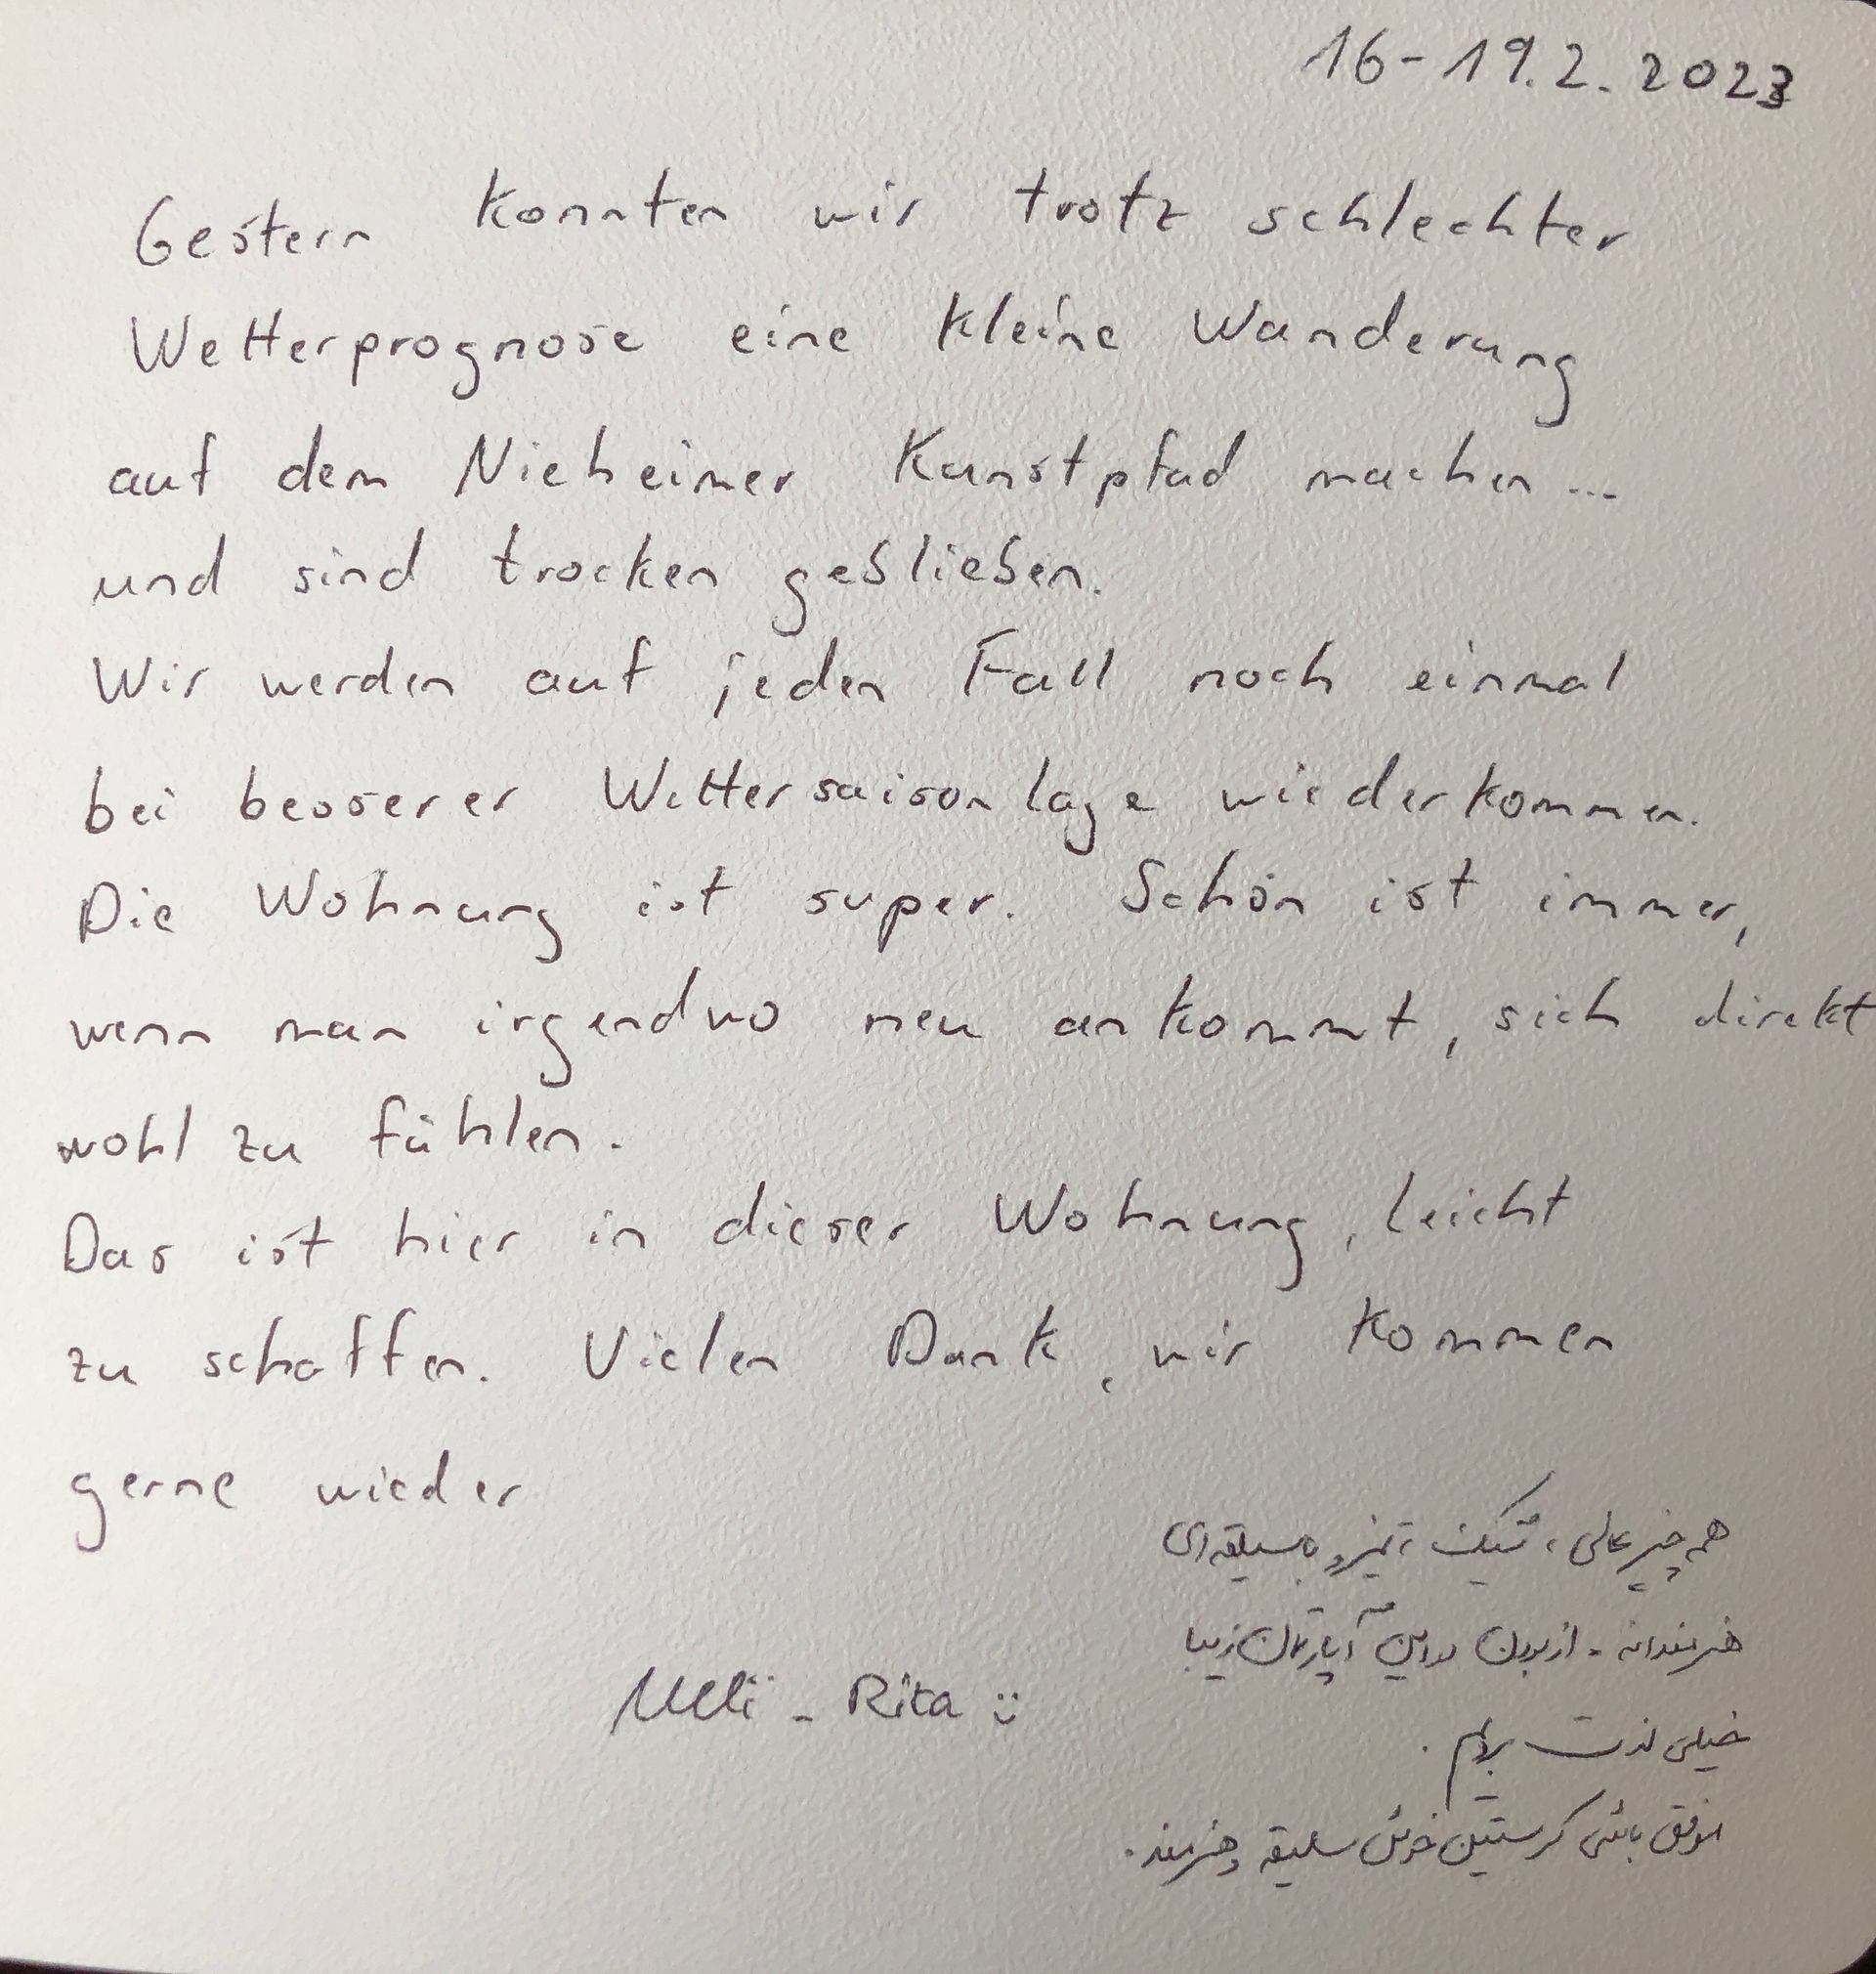 16-19.2.2023
Gestern konnten wir trotz schlechter
Wetterprognose eine kleine Wanderung
auf dem Nieheimer Kunstpfad machen...
und sind trocken geblieben.
Wir werden auf jeden Fall noch einmal
bei besserer Wettersaisonlage wiederkommen.
Die Wohnung ist super. Schön ist immer,
wenn man irgendwo neu ankommt, sich direkt
wohl zu fühlen.
Das ist hier in dieser Wohnung, leicht
zu schaffen. Vielen Dank, wir kommen
gerne wieder
همه چیز عالی، شیک، تمیز و با سلیقه‌ای
هنرمندانه. از بودن در این آپارتمان زیبا
Rita :)
خیلی لذت بردیم.
موفق باشی کرستین خوش سلیقه و هنرمند.